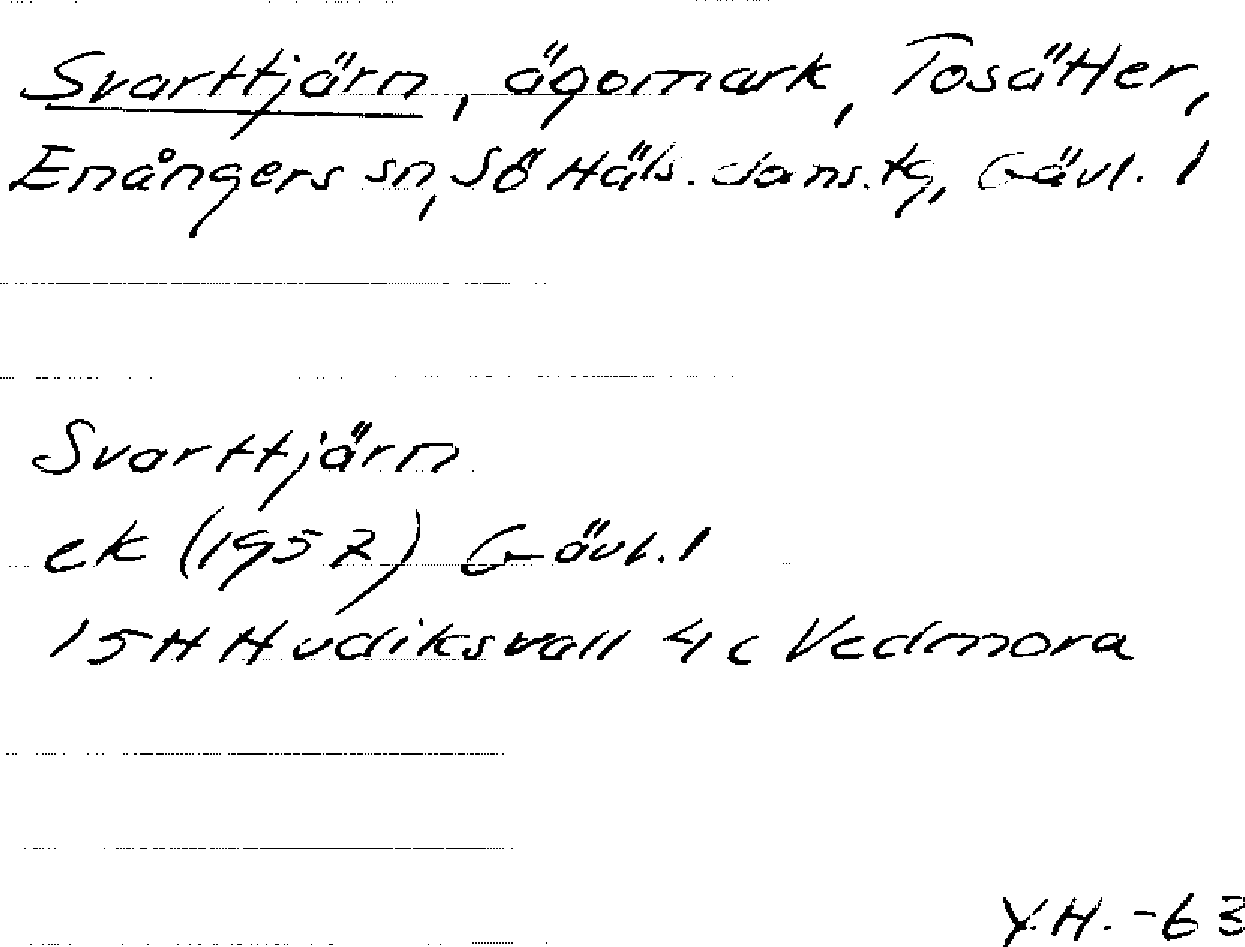 Svarttjärn, ägomark, Tosätter,
Enångers sn, SÖ Häls. doms.tg, Gävl. l
Svarttjärn
ek (1957) Gävl. l
15H Hudiksvall 4c Vedmora
Y.H. -63